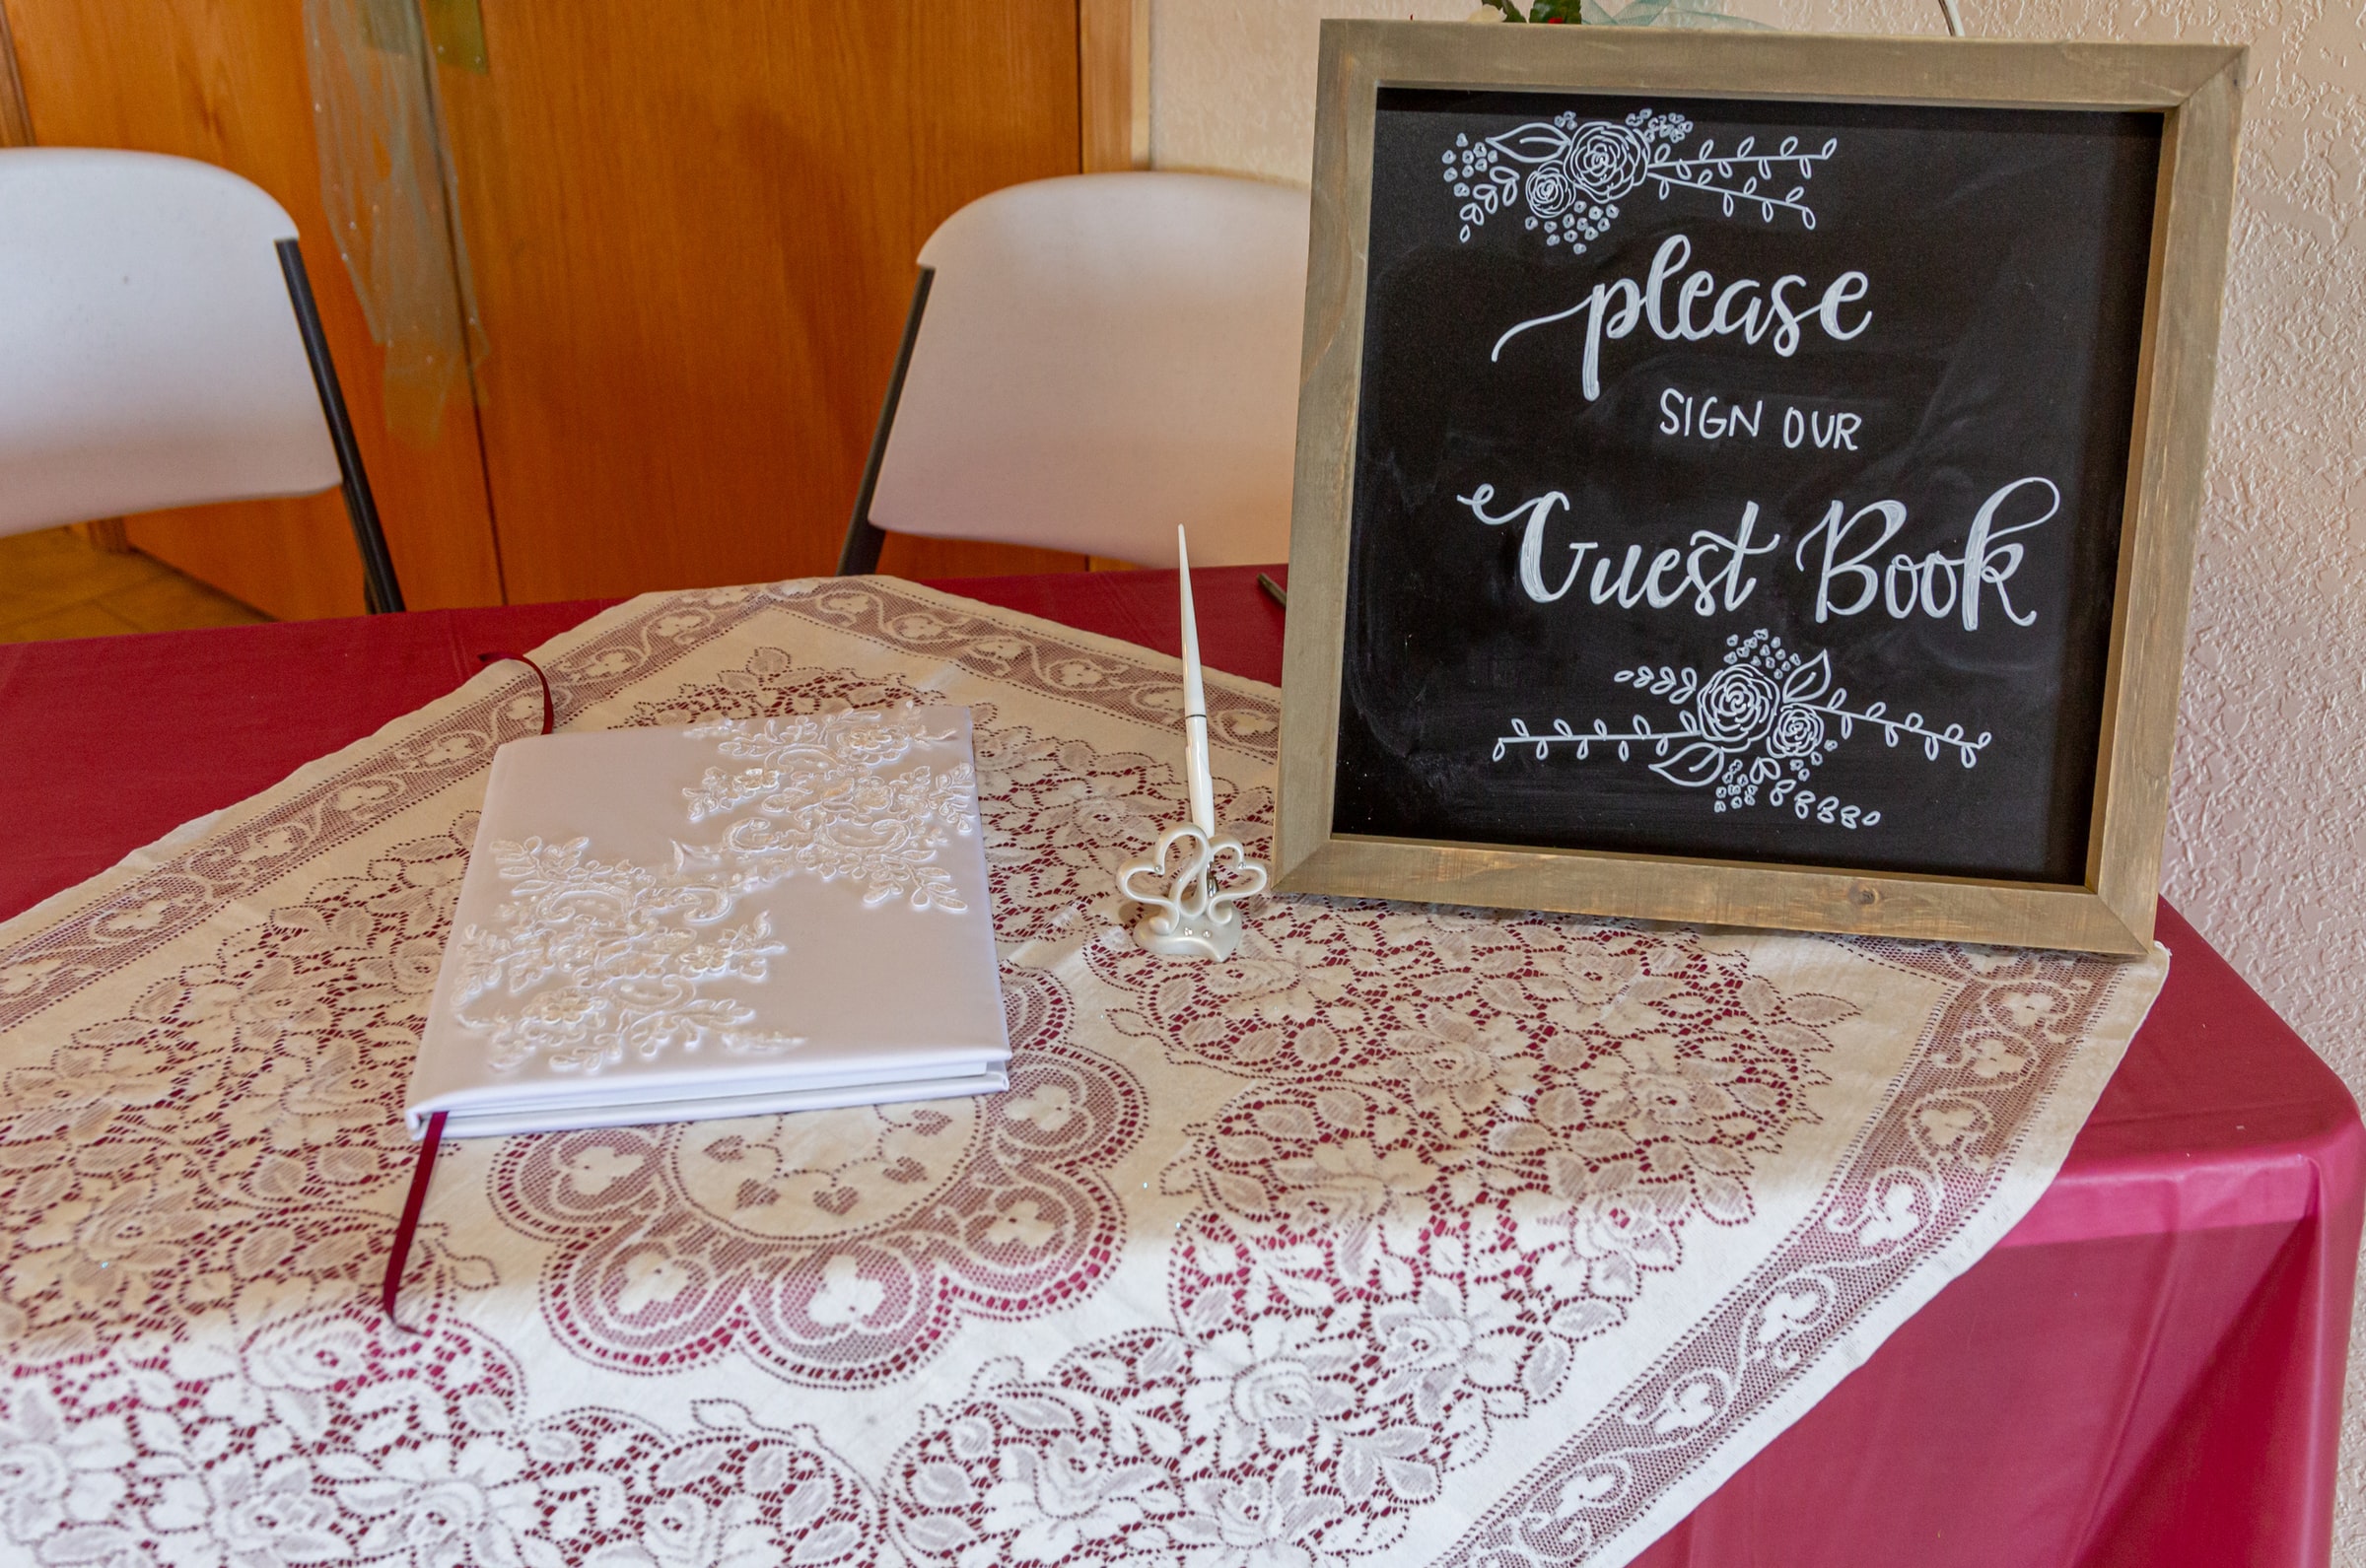 please
SIGN OUR
Guest Book